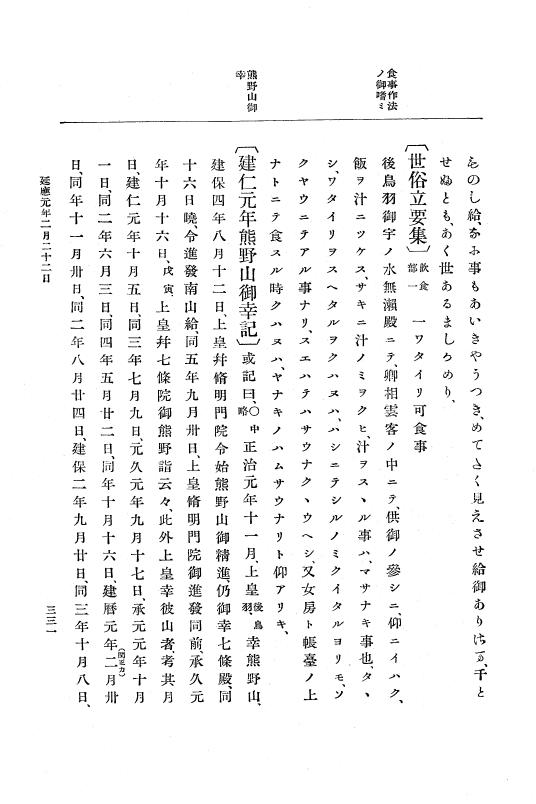 食事作法
ノ御嗜ミ
熊野山御
幸
をのし給、なみ事もあいきやうつき、めてたく見えさせ給御ありさま、千と
せぬとも、あく世あるましらめり、
〔世俗立要集〕飲食部一 一ワタイリ可食事
後鳥羽御宇ノ水無瀬殿ニテ、卿相雲客ノ中ニテ、供御ノ參シニ、仰ニイハク、
飯ヲ汁ニツケス、サキニ汁ノミヲクヒ、汁ヲスヽル事ハ、マサナキ事也、タヽ
シ、ワタイリヲスヘタルヲクハヌハ、ハシニテシルノミクイタルヨリモ、ソ
クヤウニテアル事ナリ、スエハテハサウナクヽウヘシ、又女房ト帳臺ノ上
ナトニテ食スル時クハヌハ、ヤナキノハムサウナリト仰アリキ、
〔建仁元年熊野山御幸記〕或記曰、〇中略 正治元年十一月、上皇後鳥羽幸熊野山、
建保四年八月十二日、上皇幷脩明門院令始熊野山御精進、仍御幸七條殿、同
十六日曉、令進發南山給、同五年九月卅日、上皇脩明門院御進發同前、承久元
年十月十六日、戊寅、上皇幷七條院御熊野詣云々、此外上皇幸彼山者、考其月
日、建仁元年十月五日、同三年七月九日、元久元年九月十七日、承元元年十月
一日、同二年六月三日、同四年五月廿二日、同年十月十六日、建曆元年二月卅（閏正カ）
日、同年十一月卅日、同二年八月廿四日、建保二年九月廿日、同三年十月八日、
延應元年二月二十二日
三三一